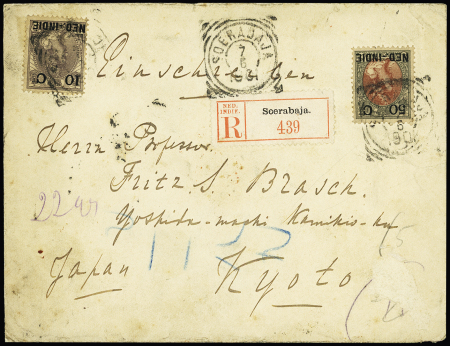 NED-INDIE
10 C
Einschreiben
SOERABAJA
7
6
NED-INDIE
50 C
NED. INDIË.
R
Soerabaja.
439
Herrn Professor
Fritz S. Brasch.
Yoshida-machi Kamikio-ku
Japan Kyoto